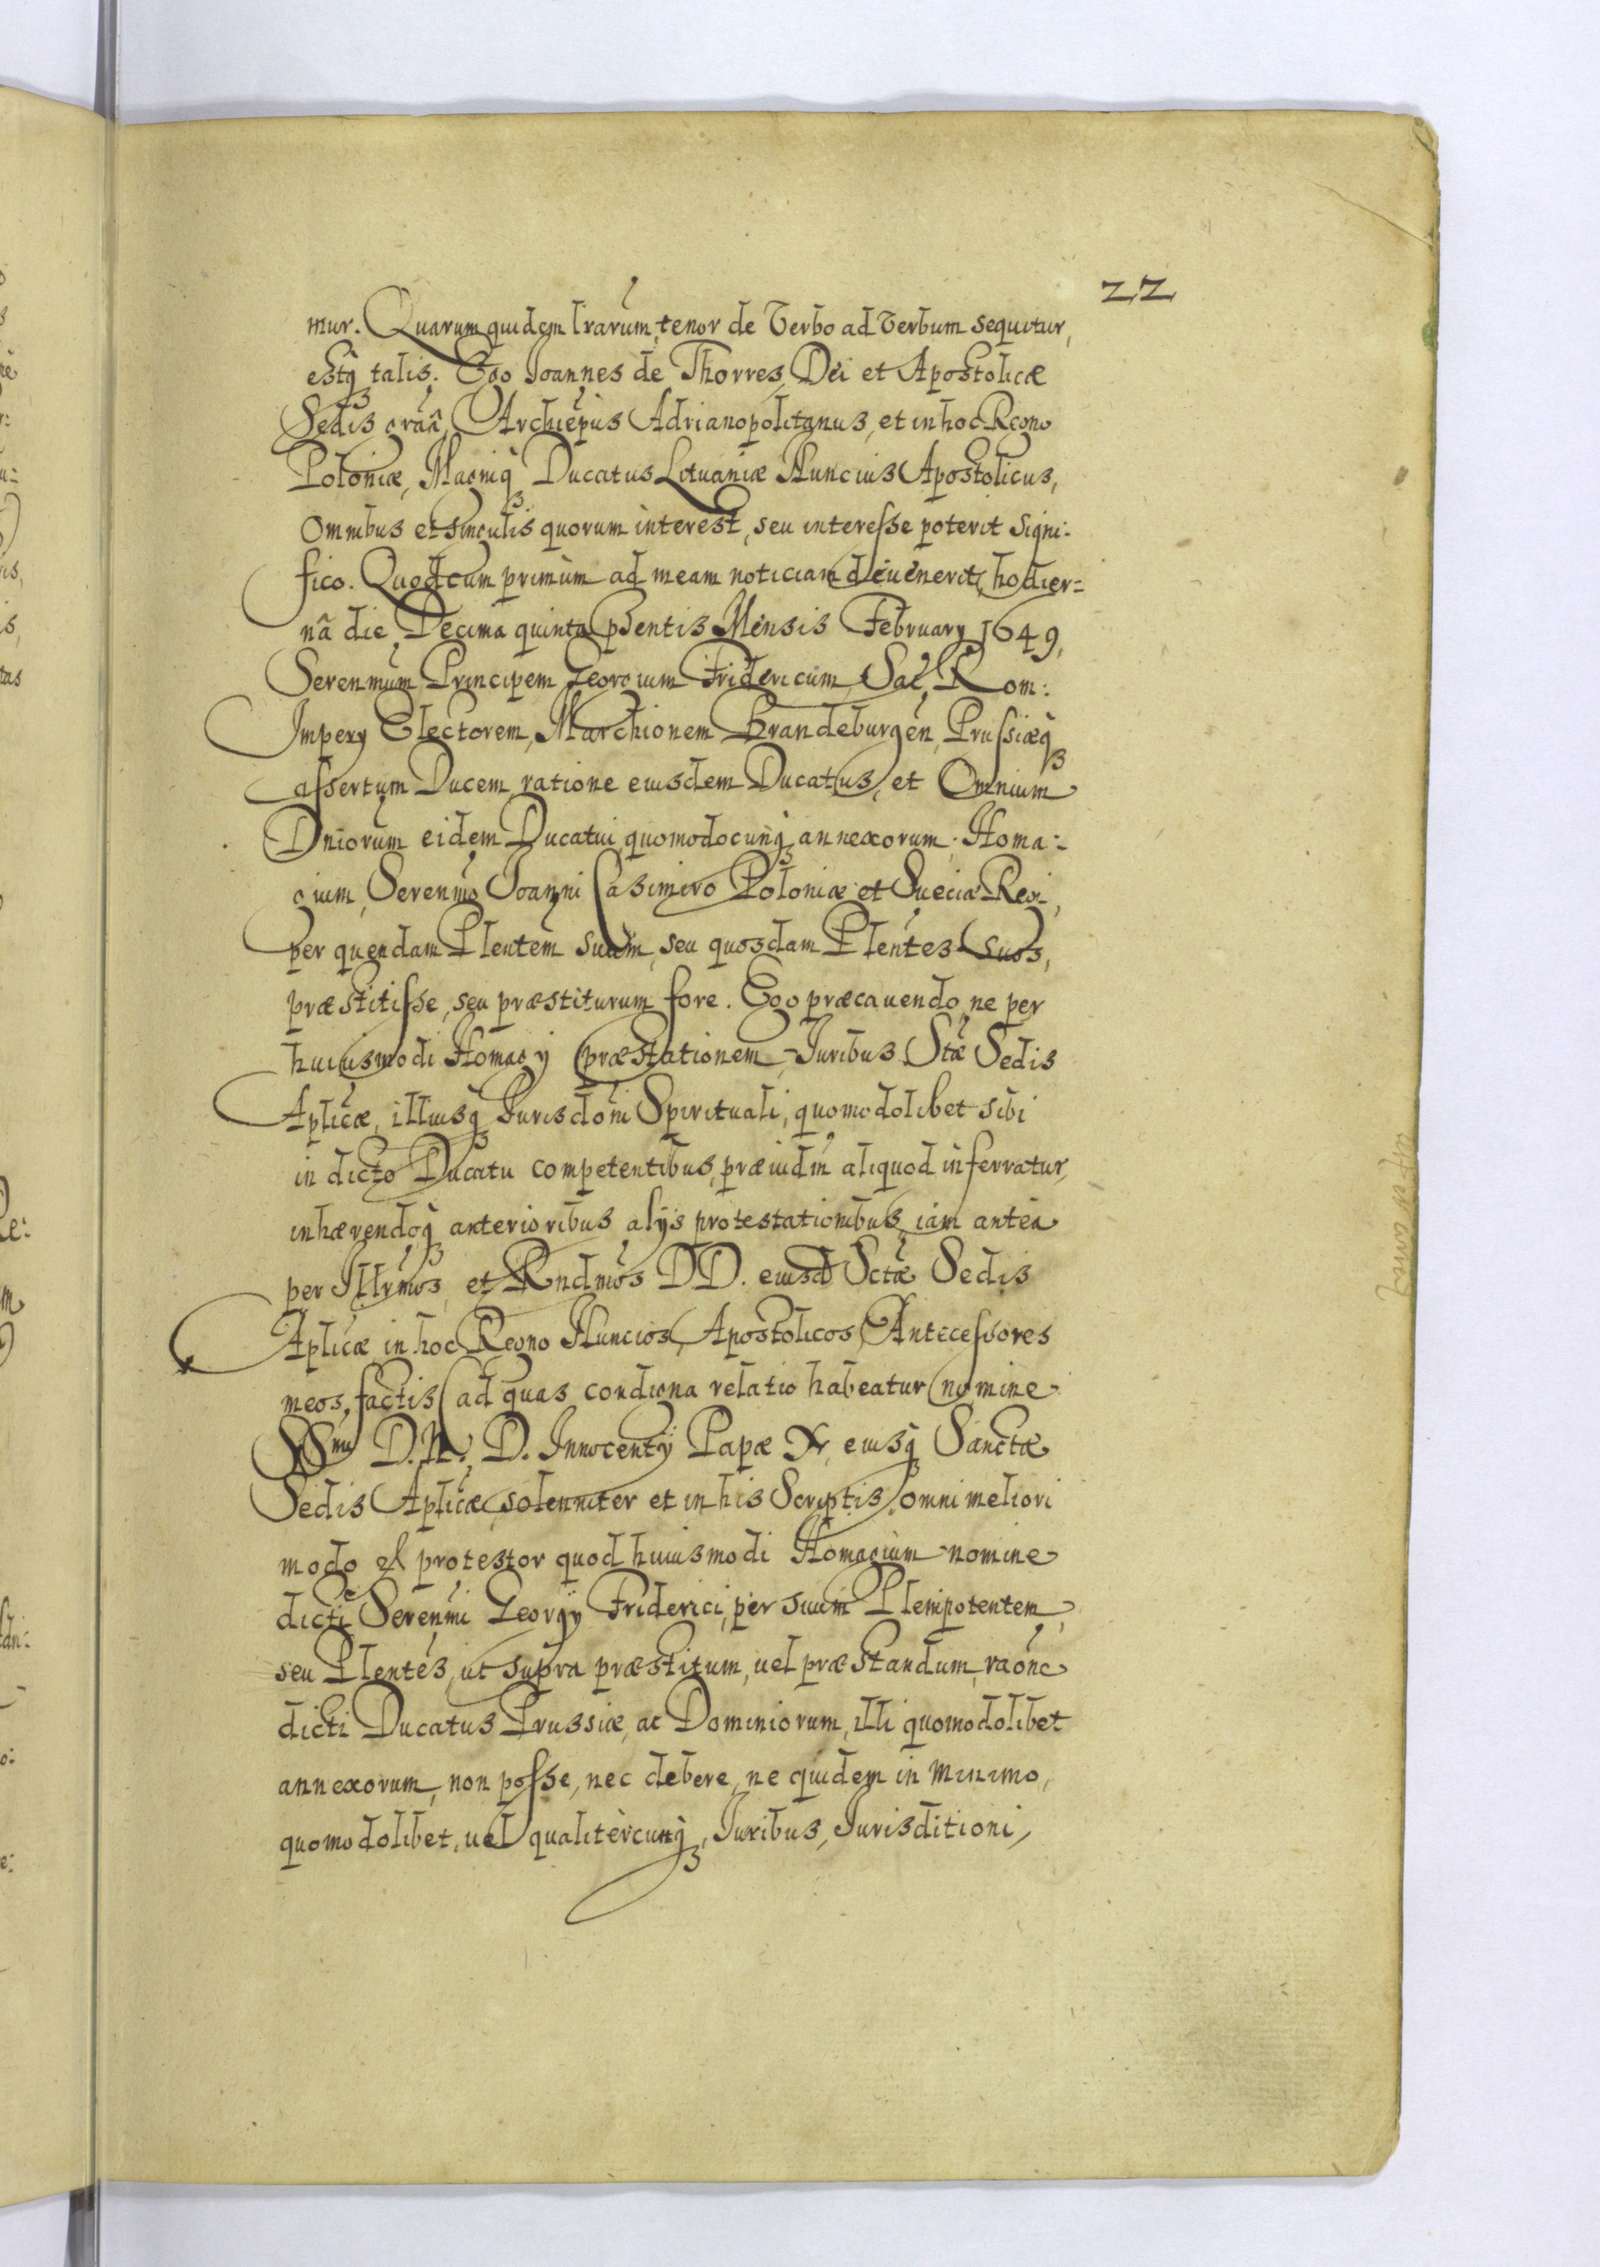 22
mur. Quarum quidem lrarum, tenor de Verbo ad Verbum sequitur,
estq talis. Ego Joannes de Thorres, Dei et Apostolicæ
Sedis grãa, Archiepus Adrianopolitanus, et in hoc Regno
Poloniæ, Magniq Ducatus Lituaniæ Nuncius Apostolicus,
Omnibus et Singulis quorum interest, seu interesse poterit signi:
fico. Quod cum primùm ad meam noticiam deuenerit, hodier=
nã die Decima quinta pñentis Mensis February 1649,
Serenmum Principem Georgium Fridericum, Sac. Rom:
Impery Electorem, Marchionem Brandeburgen, Prussiæq
assertum Ducem, ratione eiusdem Ducatus, et Omnium
Dniorum eidem Ducatui quomodocunq annexorum. Homa:
gium, Serenmo Joanni Casimiro Poloniæ et Sueciæ Regi,
per quendam Plentem suum, seu quosdam Plentes suos,
præstitisse, seu præstiturum fore. Ego præcauendo, ne per
huiusmodi Homagy præstationem, Juribus Stæ Sedis
Aplicæ, illiusq Jurisdoni Spirituali, quomodolibet sibi
in dicto Ducatu competentibus, præiudm aliquod inferratur,
inhærendoq anterioribus alijs protestationibus, iam anteà
per Illrmos, et Rndmos DD. eiusd Sctæ Sedis
Aplicæ in hoc Regno Nuncios Apostolicos, Antecessores
meos, factis (ad quas condigna relatio habeatur) nomine
SSmi D. N. D. Innocentij Papæ X, eiusq Sanctæ
Sedis Aplicæ, solenniter et in his Scriptis, omni meliori
modo protestor quod huiusmodi Homagium nomine
dicti Serenmi Georgij Friderici, per suum Plenipotentem,
seu Plentes, ut suprà præstitum, uel præstandum, raone
dicti Ducatus Prussiæ, ac Dominiorum, illi quomodolibet
annexorum, non posse, nec debere, ne quidem in minimo,
quomodolibet, uel qualitèrcunq, Juribus, Jurisditioni,